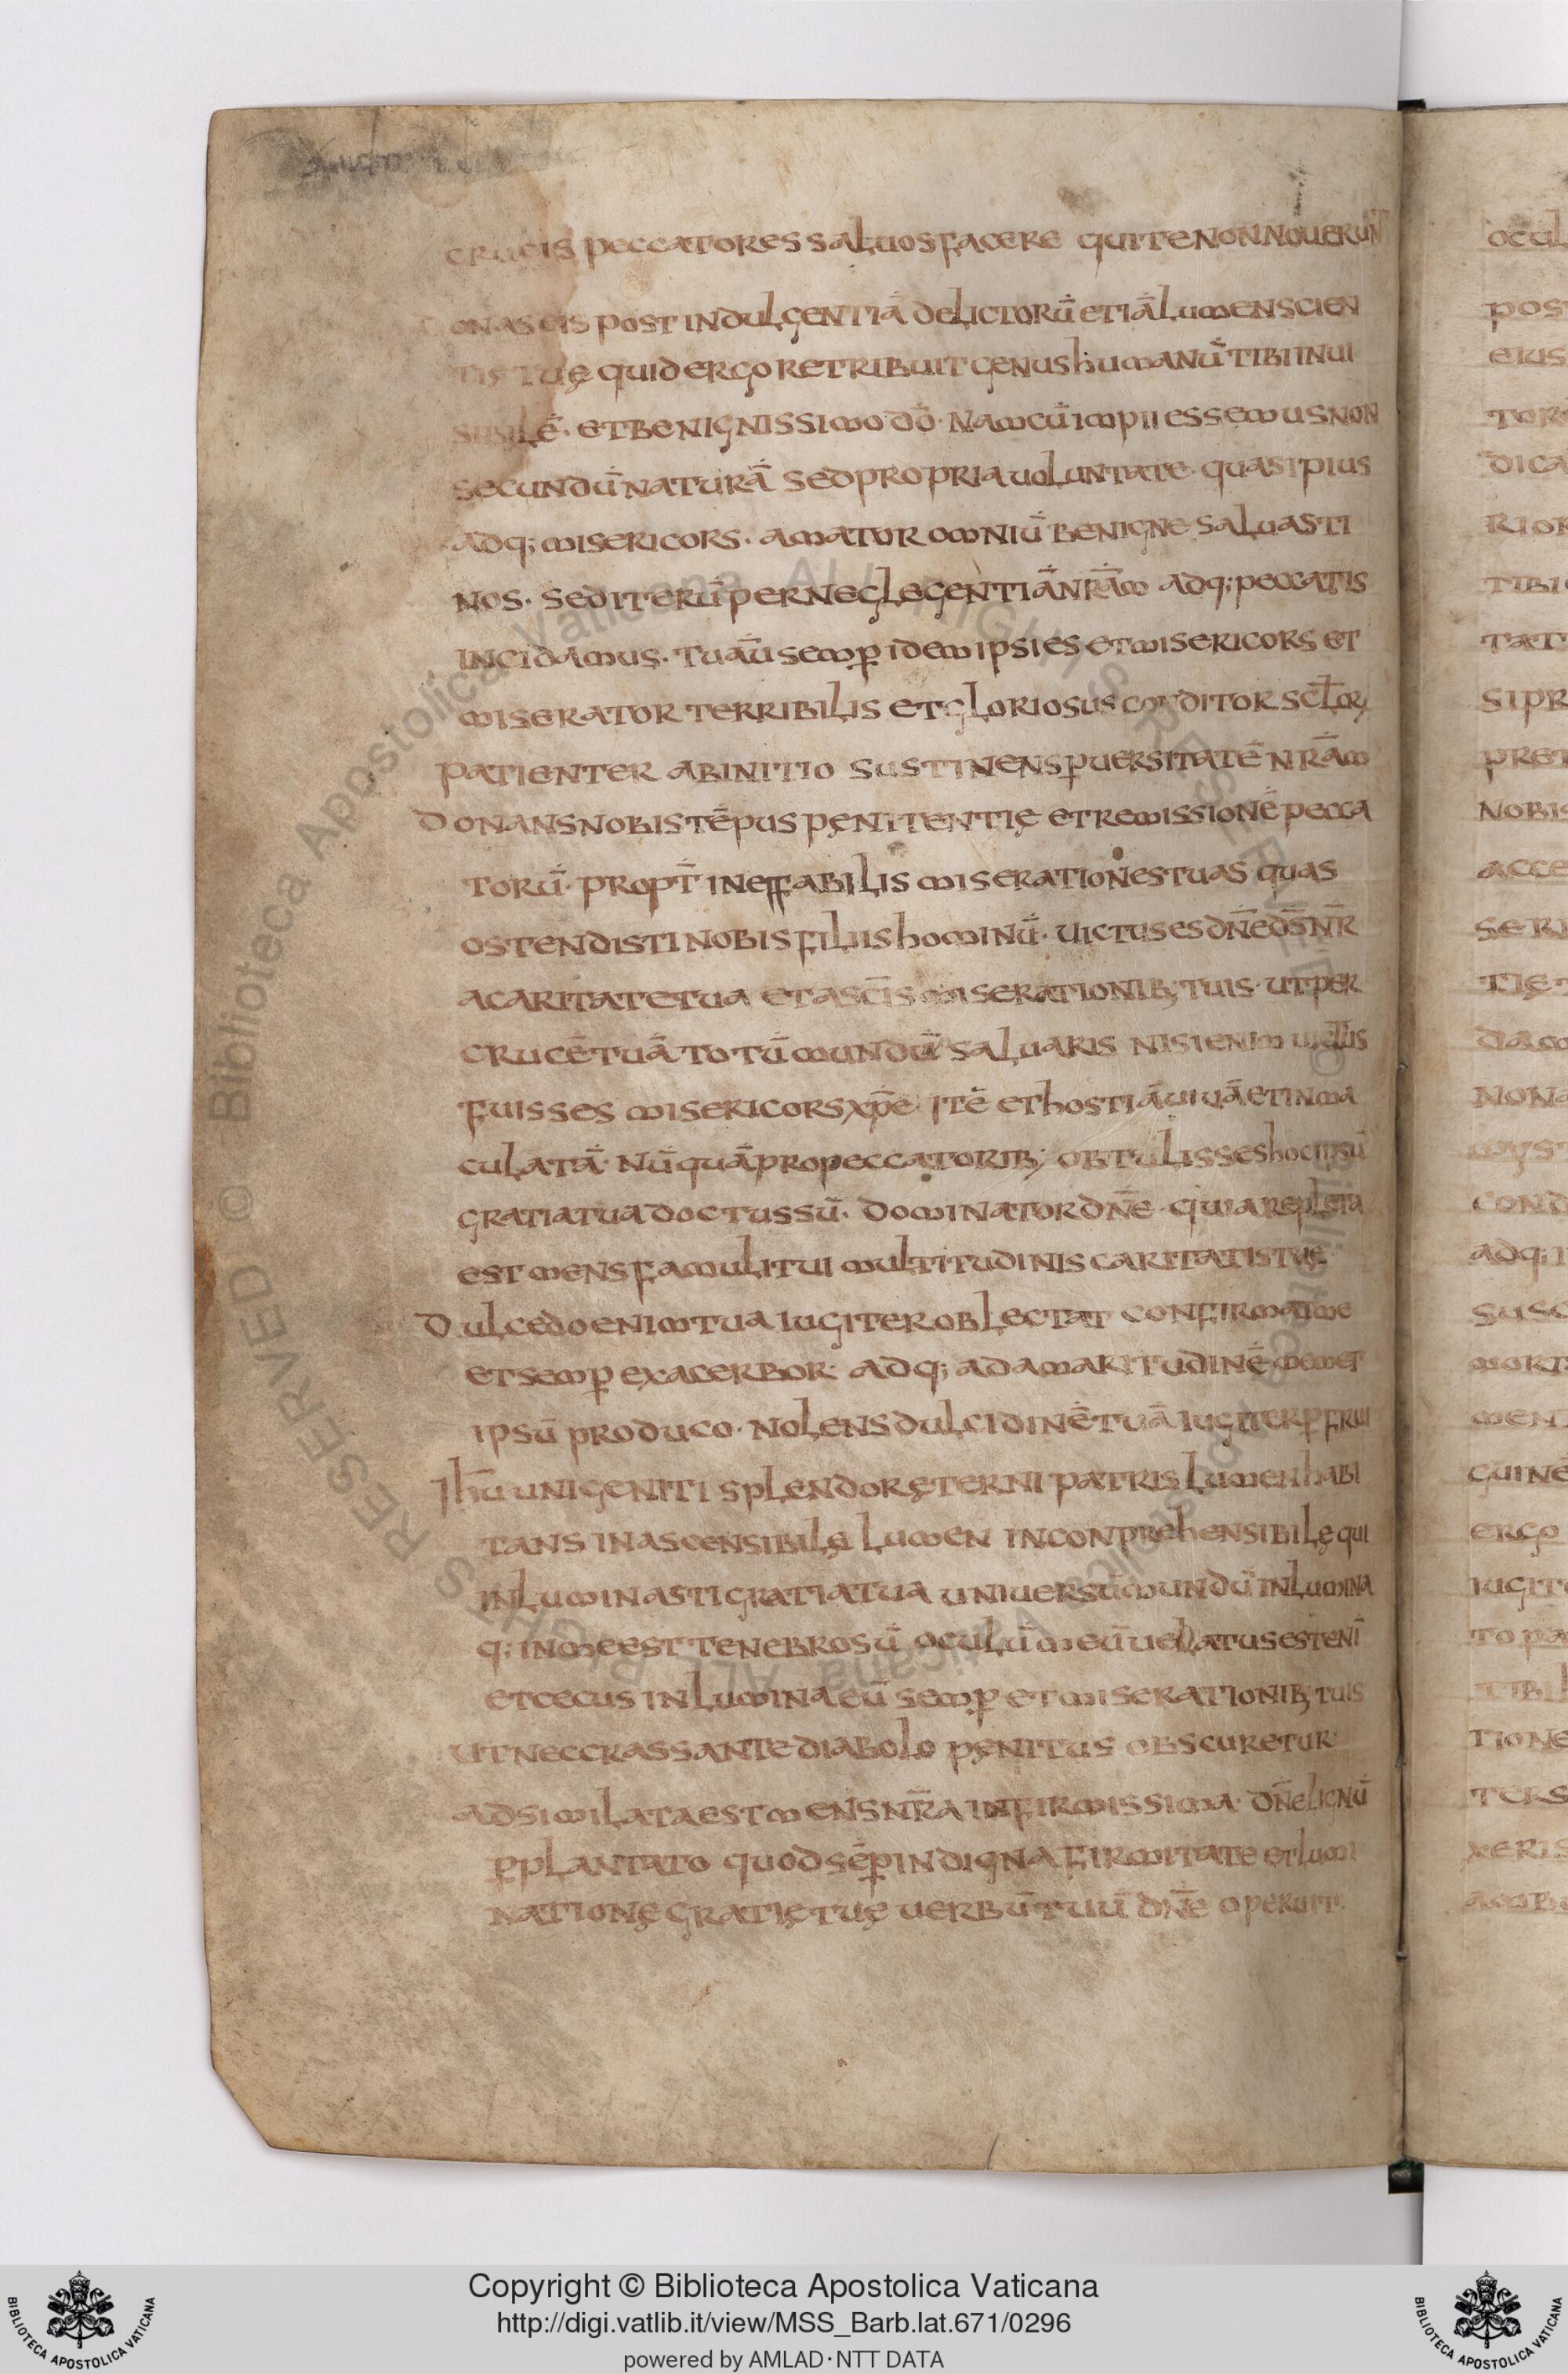 crucis peccatores saluos facere qui te non nouerunt
donas eis post indulgentiā delictorū etiā lumen scien
tię tuę quid ergo retribuit genus humanū tibi inui
sibilē· et benignissimo dō· Nam cū impii essemus non
secundū naturā sed propria uoluntate· quasi pius
adq; misericors· amatur omniū benigne saluasti
nos· sed iterū per neglegentiā nr̄ām adq; peccatis
incidamus· tu aū semp̱ idem ipsi es et misericors et
miserator terribilis et gloriosus conditor sc̄lor̄
patienter ab initio sustinens p̱uersitatē nr̄ām
Donans nobis tēpus pęnitentię et remissionē pecca
torū· propt̄ ineffabilis miserationes tuas quas
ostendisti nobis filiis hominū· uictus es dn̄e d̄s nr̄
a caritate tua et a sc̄is miserationib; tuis· ut per
crucē tuā totū mundū saluaris nisi enim uictus
fuisses misericors xp̄e· itē et hostiā uiuā et inma
culatā· nūquā pro peccatorib; obtulisses hoc ipsū
gratia tua doctus sū· dominator dn̄e· quia repleta
est mens famuli tui multitudinis caritatis tuę
Dulcedo enim tua iugiter oblectat confirmat me
et semp̱ exacerbor· adq; ad amaritudinē memet
ipsū produco· nolens dulcidinē tuā iugiter p̱frui
Ih̄u unigeniti splendor ęterni patris lumen habi
tans inascensibilę lumen inconprehensibilę qui
inluminasti gratia tua uniuersū mundū inlumina
q; in me est tenebrosū oculū meū uelatus est enī
et cecus inlumina eū semp̱ et miserationib; tuis
ut nec crassante diabolo pęnitus obscuretur·
adsimilata est mens nr̄a infirmissima· dn̄e lignū
p̱plantato quod sēp̱ indigna firmitate et lumi
nationę gratię tuę uerbū tuū dn̄e operuit·
Copyright © Biblioteca Apostolica Vaticana
http://digi.vatlib.it/view/MSS_Barb.lat.671/0296
powered by AMLAD·NTT DATA